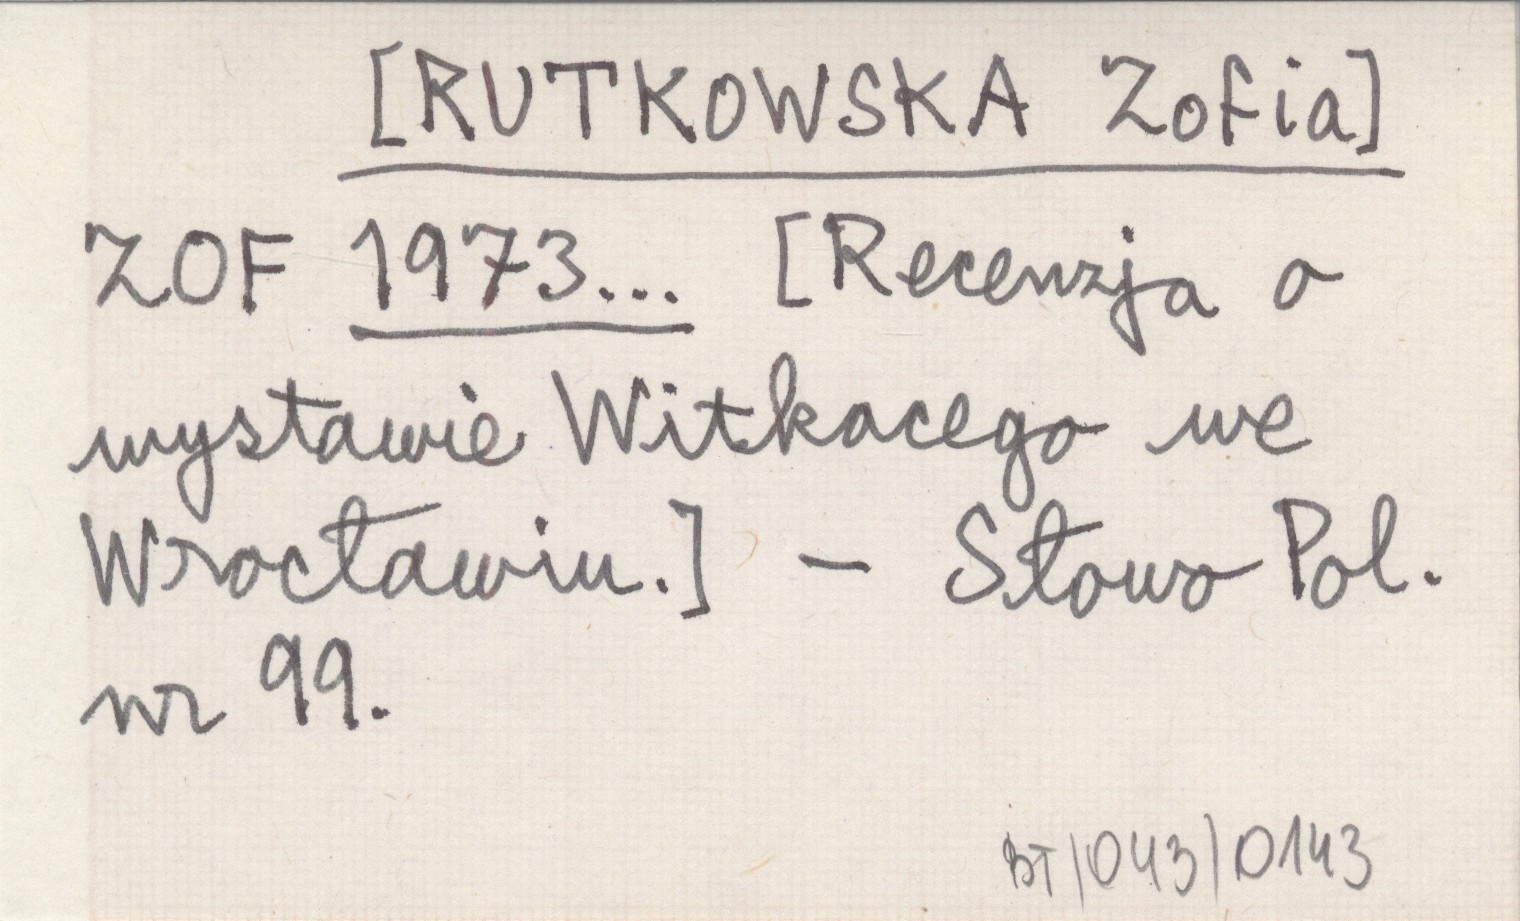 [RUTKOWSKA Zofia]
ZOF 1973... [Recenzja o
wystawie Witkacego we
Wrocławiu.] — Słowo Pol.
nr 99.
BT/043/0143